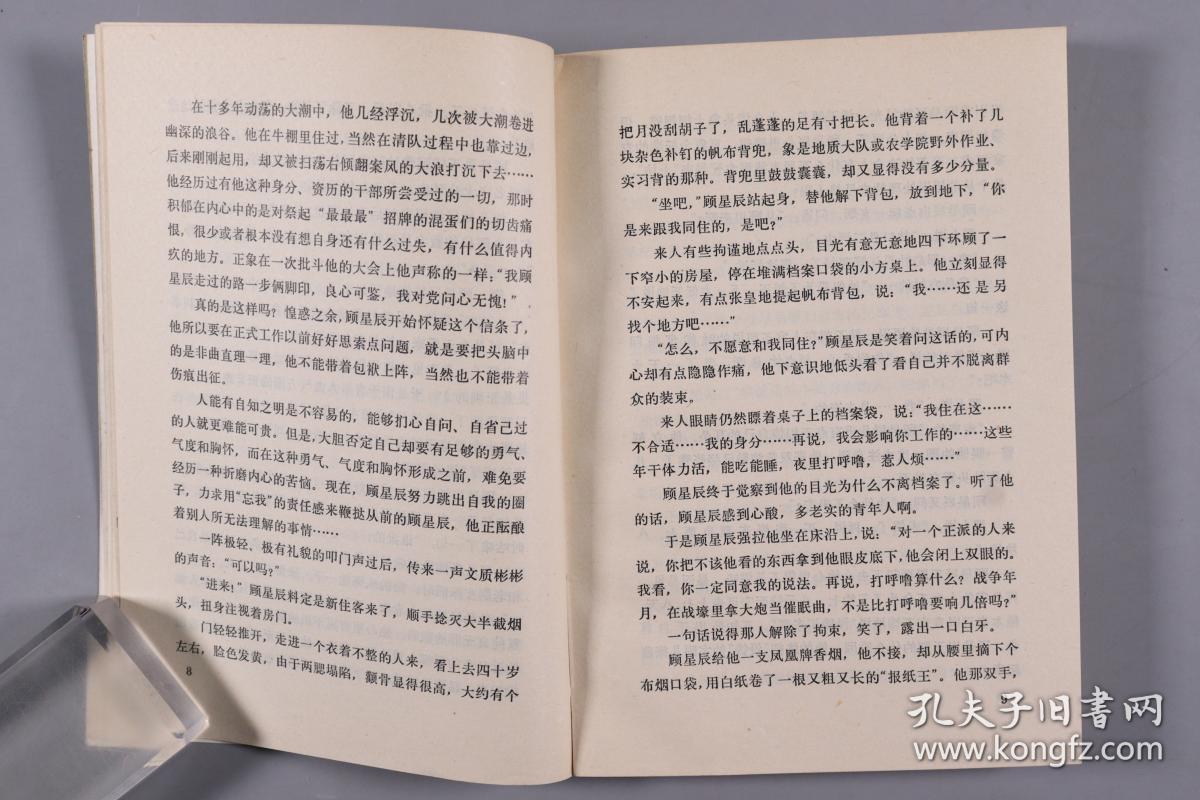 在十多年动荡的大潮中，他几经浮沉，几次被大潮卷进
幽深的浪谷。他在牛棚里住过，当然在清队过程中也靠过边，
后来刚刚起用，却又被扫荡右倾翻案风的大浪打沉下去……
他经历过有他这种身分、资历的干部所尝受过的一切，那时
积郁在内心中的是对祭起“最最最”招牌的混蛋们的切齿痛
恨，很少或者根本没有想自身还有什么过失，有什么值得内
疚的地方。正象在一次批斗他的大会上他声称的一样：“我顾
星辰走过的路一步俩脚印，良心可鉴，我对党问心无愧！”
真的是这样吗？惶惑之余，顾星辰开始怀疑这个信条了，
他所以要在正式工作以前好好思索点问题，就是要把头脑中
的是非曲直理一理，他不能带着包袱上阵，当然也不能带着
伤痕出征。
人能有自知之明是不容易的，能够扪心自问、自省己过
的人就更难能可贵。但是，大胆否定自己却要有足够的勇气、
气度和胸怀，而在这种勇气、气度和胸怀形成之前，难免要
经历一种折磨内心的苦恼。现在，顾星辰努力跳出自我的圈
子，力求用“忘我”的责任感来鞭挞从前的顾星辰，他正酝酿
着别人所无法理解的事情……
一阵极轻、极有礼貌的叩门声过后，传来一声文质彬彬
的声音：“可以吗？”
“进来！”顾星辰料定是新住客来了，顺手捻灭大半截烟
头，扭身注视着房门。
门轻轻推开，走进一个衣着不整的人来，看上去四十岁
左右，脸色发黄，由于两腮塌陷，颧骨显得很高，大约有个
8
把月没刮胡子了，乱蓬蓬的足有寸把长。他背着一个补了几
块杂色补钉的帆布背兜，象是地质大队或农学院野外作业、
实习背的那种。背兜里鼓鼓囊囊，却又显得没有多少分量。
“坐吧，”顾星辰站起身，替他解下背包，放到地下，“你
是来跟我同住的，是吧？”
来人有些拘谨地点点头，目光有意无意地四下环顾了一
下窄小的房屋，停在堆满档案口袋的小方桌上。他立刻显得
不安起来，有点张皇地提起帆布背包，说：“我……还是另
找个地方吧……”
“怎么，不愿意和我同住？”顾星辰是笑着问这话的，可内
心却有点隐隐作痛，他下意识地低头看了看自己并不脱离群
众的装束。
来人眼睛仍然瞟着桌子上的档案袋，说：“我住在这……
不合适……我的身分……再说，我会影响你工作的……这些
年干体力活，能吃能睡，夜里打呼噜，惹人烦……”
顾星辰终于觉察到他的目光为什么不离档案了。听了他
的话，顾星辰感到心酸，多老实的青年人啊。
于是顾星辰强拉他坐在床沿上，说：“对一个正派的人来
说，你把不该他看的东西拿到他眼皮底下，他会闭上双眼的。
我看，你一定同意我的说法。再说，打呼噜算什么？战争年
月，在战壕里拿大炮当催眠曲，不是比打呼噜要响几倍吗？”
一句话说得那人解除了拘束，笑了，露出一口白牙。
顾星辰给他一支凤凰牌香烟，他不接，却从腰里摘下个
布烟口袋，用白纸卷了一根又粗又长的“报纸王”。他那双手，
9
孔夫子旧书网
www.kongfz.com